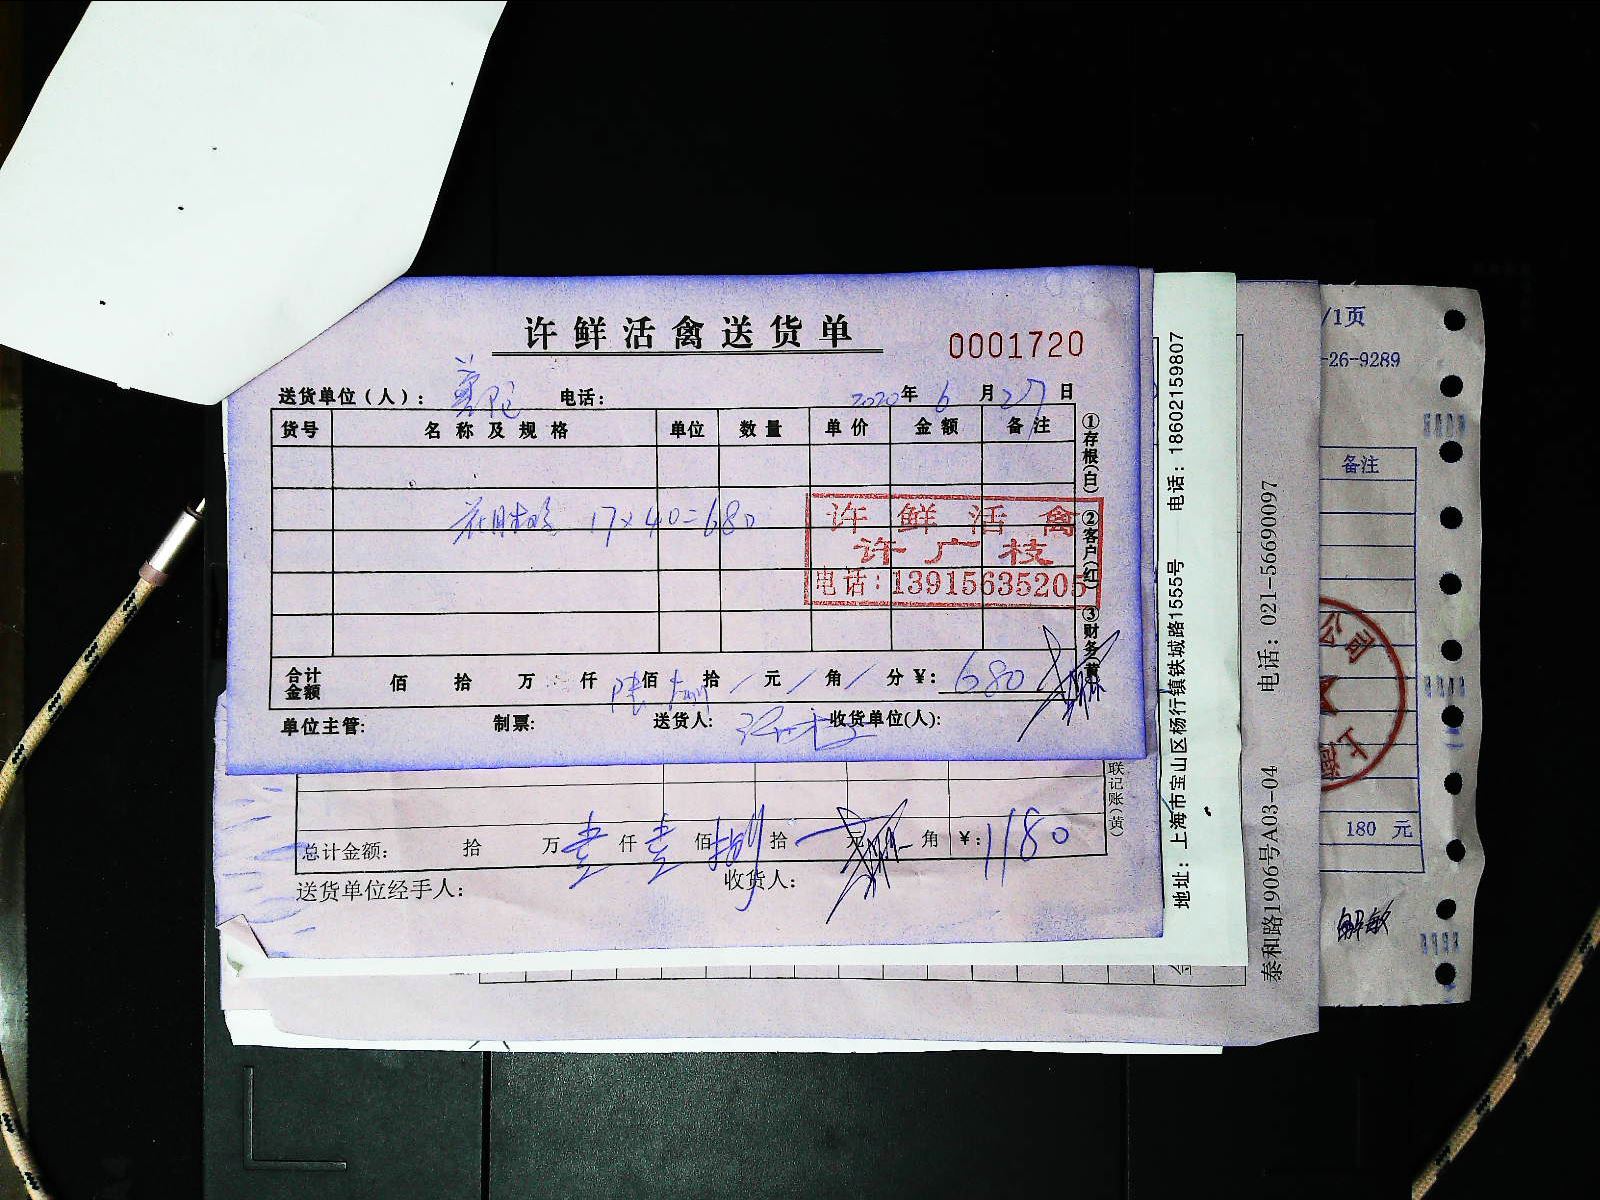 许鲜活禽送货单
0001720
送货单位(人): 电话: 2020年 6月27日
货号 名称及规格 单位 数量 单价 金额 备注
17×40=680
①存根(白) ②客户(红) ③财务(黄)
许鲜活禽
许广枝
电话:13915635205
合计金额 佰 拾 万 仟 陆佰 捌拾 / 元 / 角 / 分 ¥: 680
单位主管: 制票: 送货人: 收货单位(人):
联记账(黄)
总计金额: 拾 万 壹仟 壹佰 捌拾 元 角 ¥: 1180
送货单位经手人: 收货人:
地址: 上海市宝山区杨行镇铁城路1555号 电话: 18602159807
泰和路1906号A03-04 电话: 021-56690097
/1页
-26-9289
备注
公司
上海
180 元
解敏